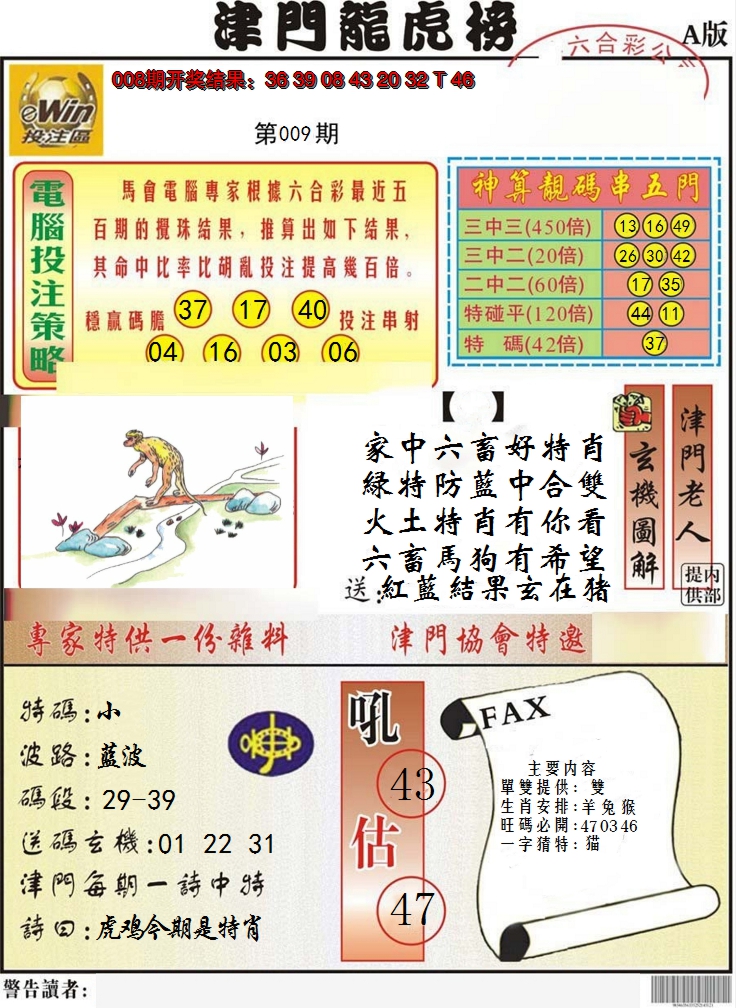 津門龍虎榜
A版
六合彩公
008期开奖结果：36 39 08 43 20 32 T 46
eWin
投注區
第009期
電腦投注策略
馬會電腦專家根據六合彩最近五
百期的攪珠结果，推算出如下结果，
其命中比率比胡亂投注提高幾百倍。
穩贏碼膽 37 17 40 投注串射
04 16 03 06
神算靚碼串五門
三中三(450倍) 13 16 49
三中二(20倍) 26 30 42
二中二(60倍) 17 35
特碰平(120倍) 44 11
特 碼(42倍) 37
【 】
家中六畜好特肖
綠特防藍中合雙
火土特肖有你看
六畜馬狗有希望
送:紅藍結果玄在猪
玄機圖解
津門老人
提供
内部
專家特供一份雜料
津門協會特邀
特碼:小
波路:藍波
碼段:29-39
送碼玄機:01 22 31
津門每期一詩中特
詩曰:虎鸡今期是特肖
吼
43
估
47
FAX
主要内容
單雙提供：雙
生肖安排:羊兔猴
旺碼必開:470346
一字猜特:猫
警告讀者：